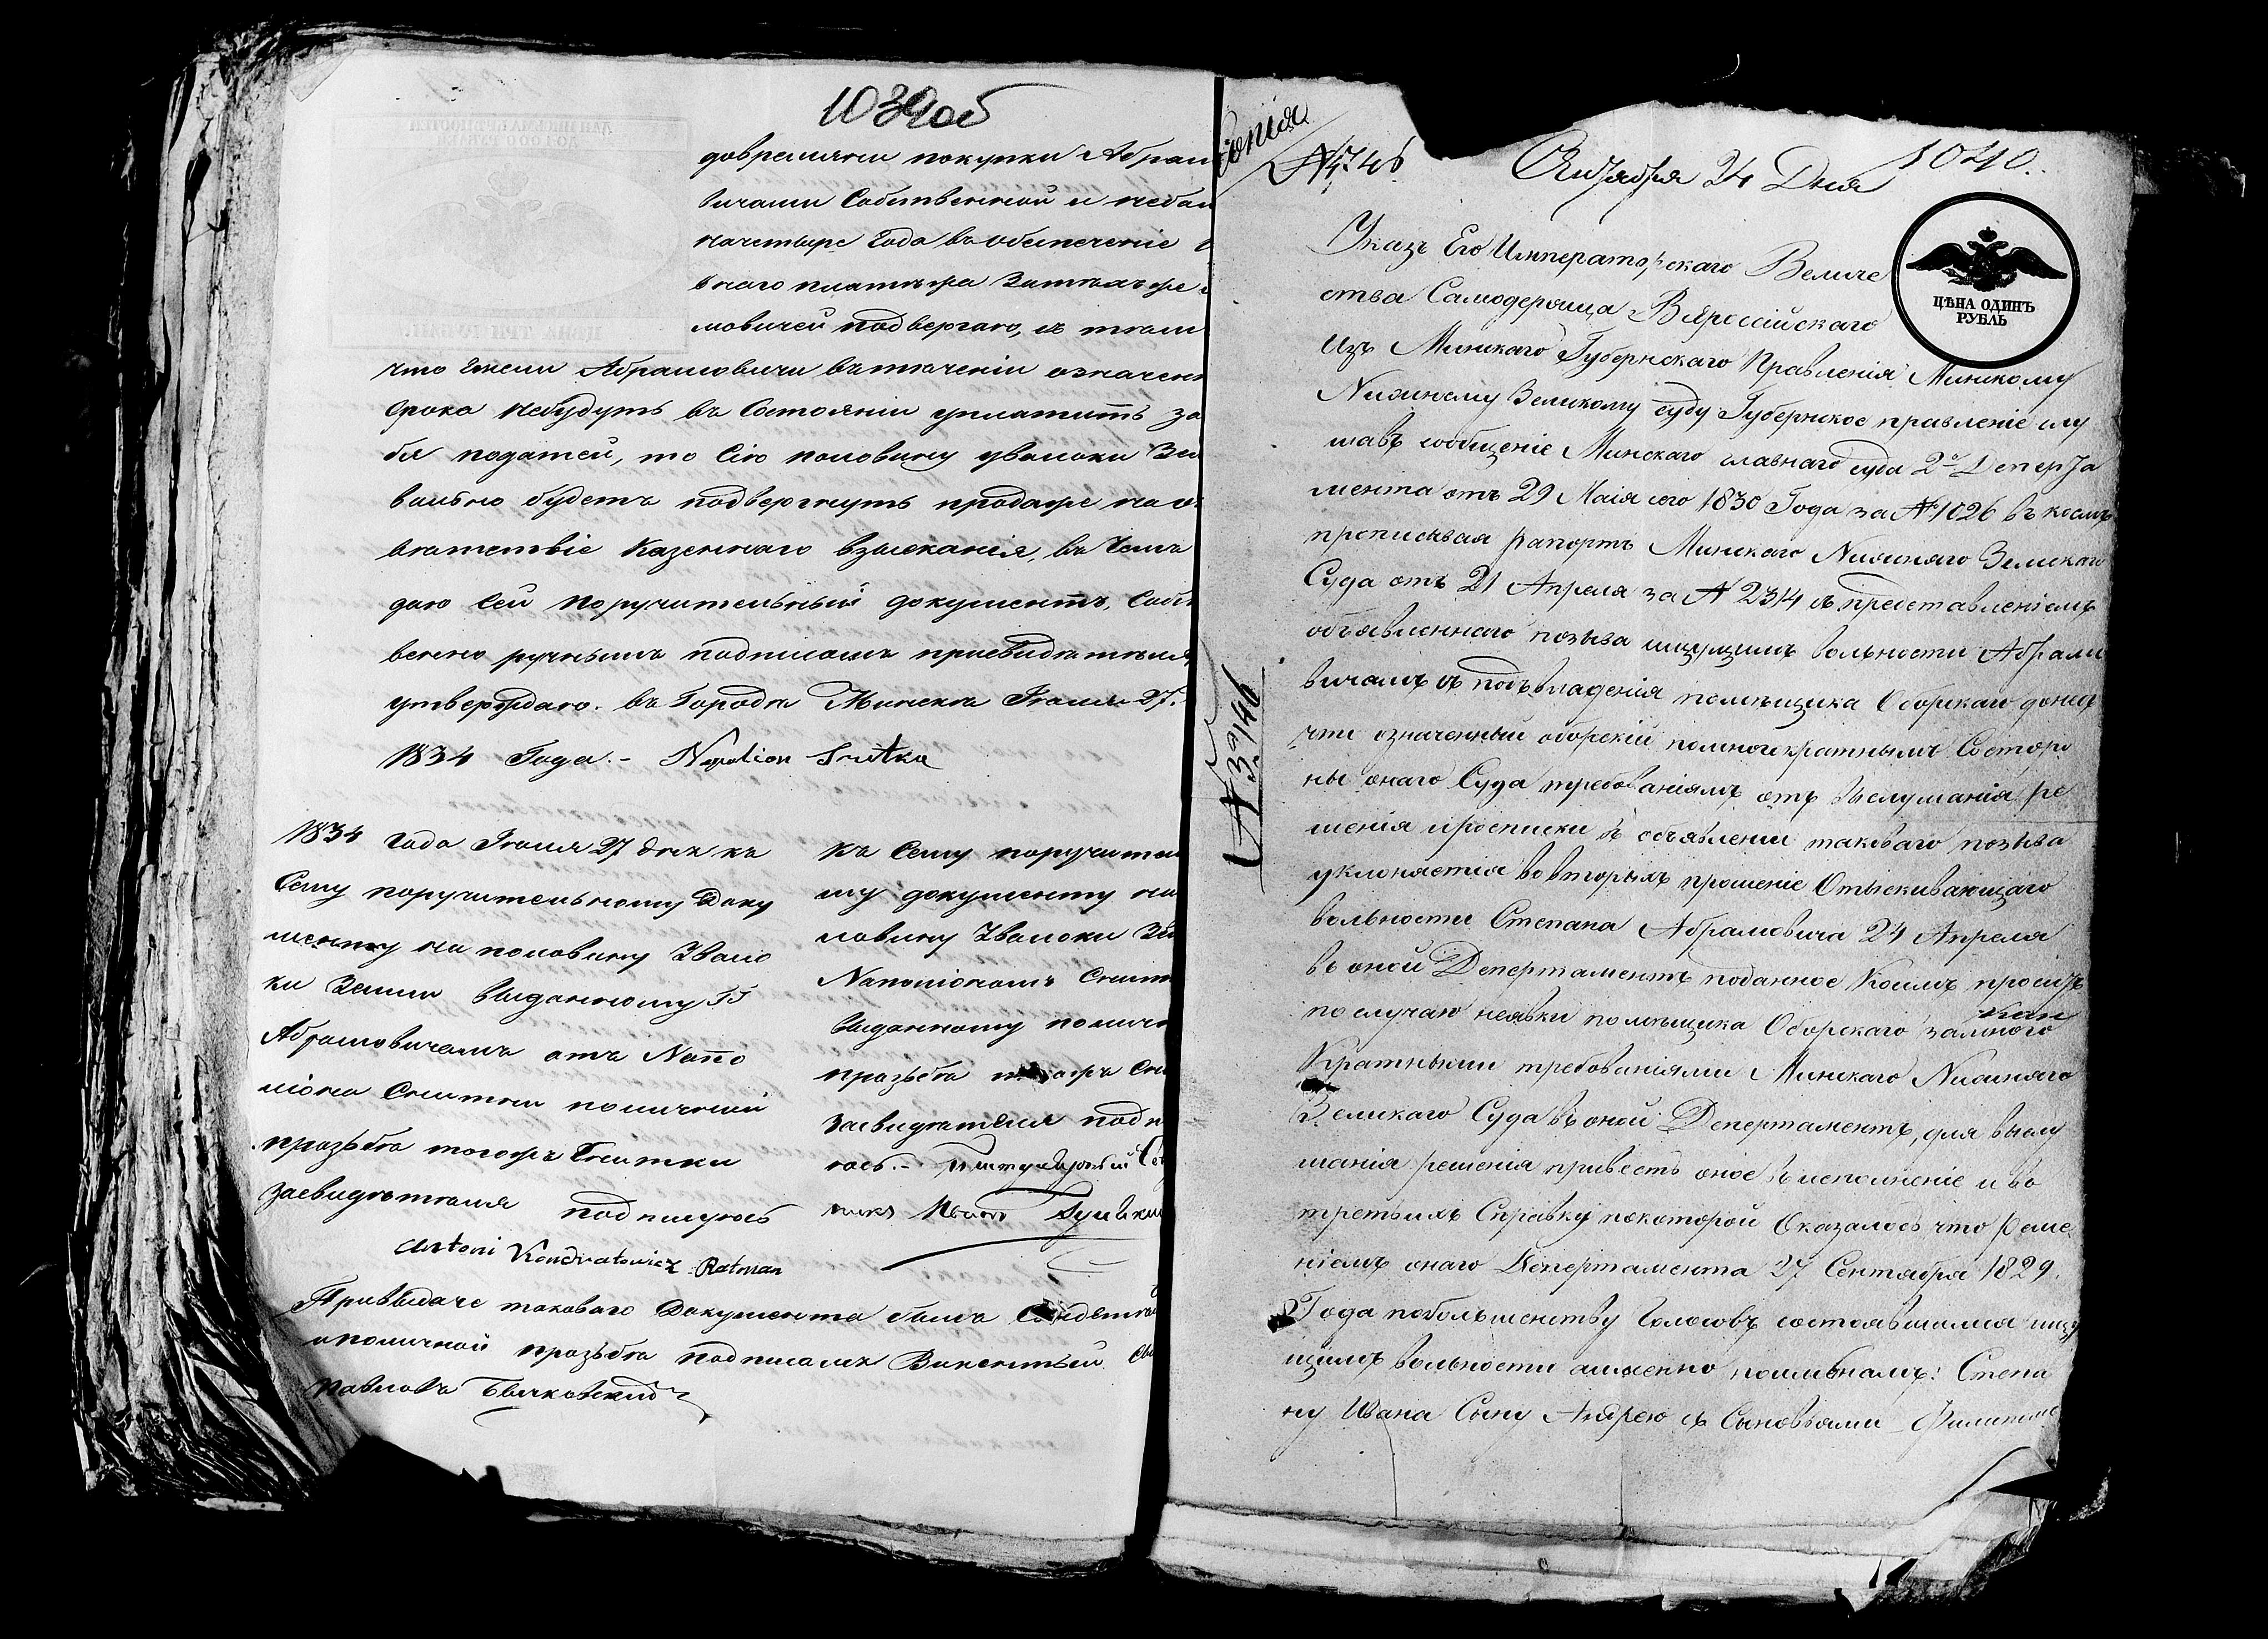 1039об
довремяни покупки Абрам
вичами Собственной и
начетыре Года въ обеспеченіе
мовичей подвергаю, съ тем
что Ежели Абрамовичи въ теченіи означен
срока небудутъ въ Состояніи уплатить за
бя податей, то Сію половину уволоки Зем
вольно будетъ подвергнуть продаже на
Казеннаго взысканія, въ Чемъ
даю Сей поручительный документъ, Собст
венно ручнымъ подписомъ
утверждаю. въ Городѣ Минскѣ Іюля 27.
1834 Года. - Napolion Snitka
1834 года Іюля 27 дня къ
Сему поручительному Доку
менту на половину Уволо
ки Земли выданному ГГ
Абрамовичамъ отъ Напо
ліона Снитки по личной
прозьбѣ тогожъ Снитки
засвидѣтеля подписуюсь
Antoni Kondratowicz Ratman
Къ Сему поручител
му документу на
ловину Уволоки Зе
Наполіономъ Снит
выданному по лич
прозьбѣ тогожъ Сни
засвидѣтеля подп
юсь. - Титулярный Со
При выдаче таковаго Документа былъ Свидетел
и по личной прозьбѣ подписался Викентьей
Павловъ Бычковскій
Копія
№ 1746
Октября 24 Дня
1040.
ЦѢНА ОДИНЪ
РУБЛЬ
Указъ Его Императорскаго Величе
ства Самодержца Всяроссійскаго
Изъ Минскаго Губернскаго Правленія Минскому
Нижнему Земскому суду Губернское правленіе слу
шавъ сообщеніе Минскаго главнаго суда 2го Деперта
мента отъ 29 Маія сего 1830 Года за № 1026 въ коемъ
прописывая рапортъ Минскаго Нижняго Земскаго
Суда отъ 21 Апреля за № 2314 съ представленіемъ
объявленнаго позыва ищущимъ вольности Абрамо
вичамъ съ подъ владенія помѣщика Оборскаго донес
что означенный оборскій помногократнымъ Состоро
ны онаго Суда требованіямъ отъ выслушанія ре
шенія и росписки въ объявленіи таковаго позыва
уклоняется во вторыхъ прошеніе Отыскивающаго
вольности Степана Абрамовича 24 Апреля
въ оной Депертаментъ поданное Коимъ проситъ
послучаю неявки помѣщика Оборскаго замного
Кратными требованіями Минскаго Нижняго
Земскаго Суда въ оной Депертаментъ, для выслу
шанія решенія привесть оное въ исполненіе и въ
третьихъ Справку покоторой Оказалось что Реше
ніемъ онаго Депертамента 27 Сентября 1829.
Года побольшенству Голосовъ состоявшимся ищу
щимъ вольности а именно поимѣнамъ: Степа
ну Ивана Сыну Андрею съ Сыновьями Филипомъ
№ 3946